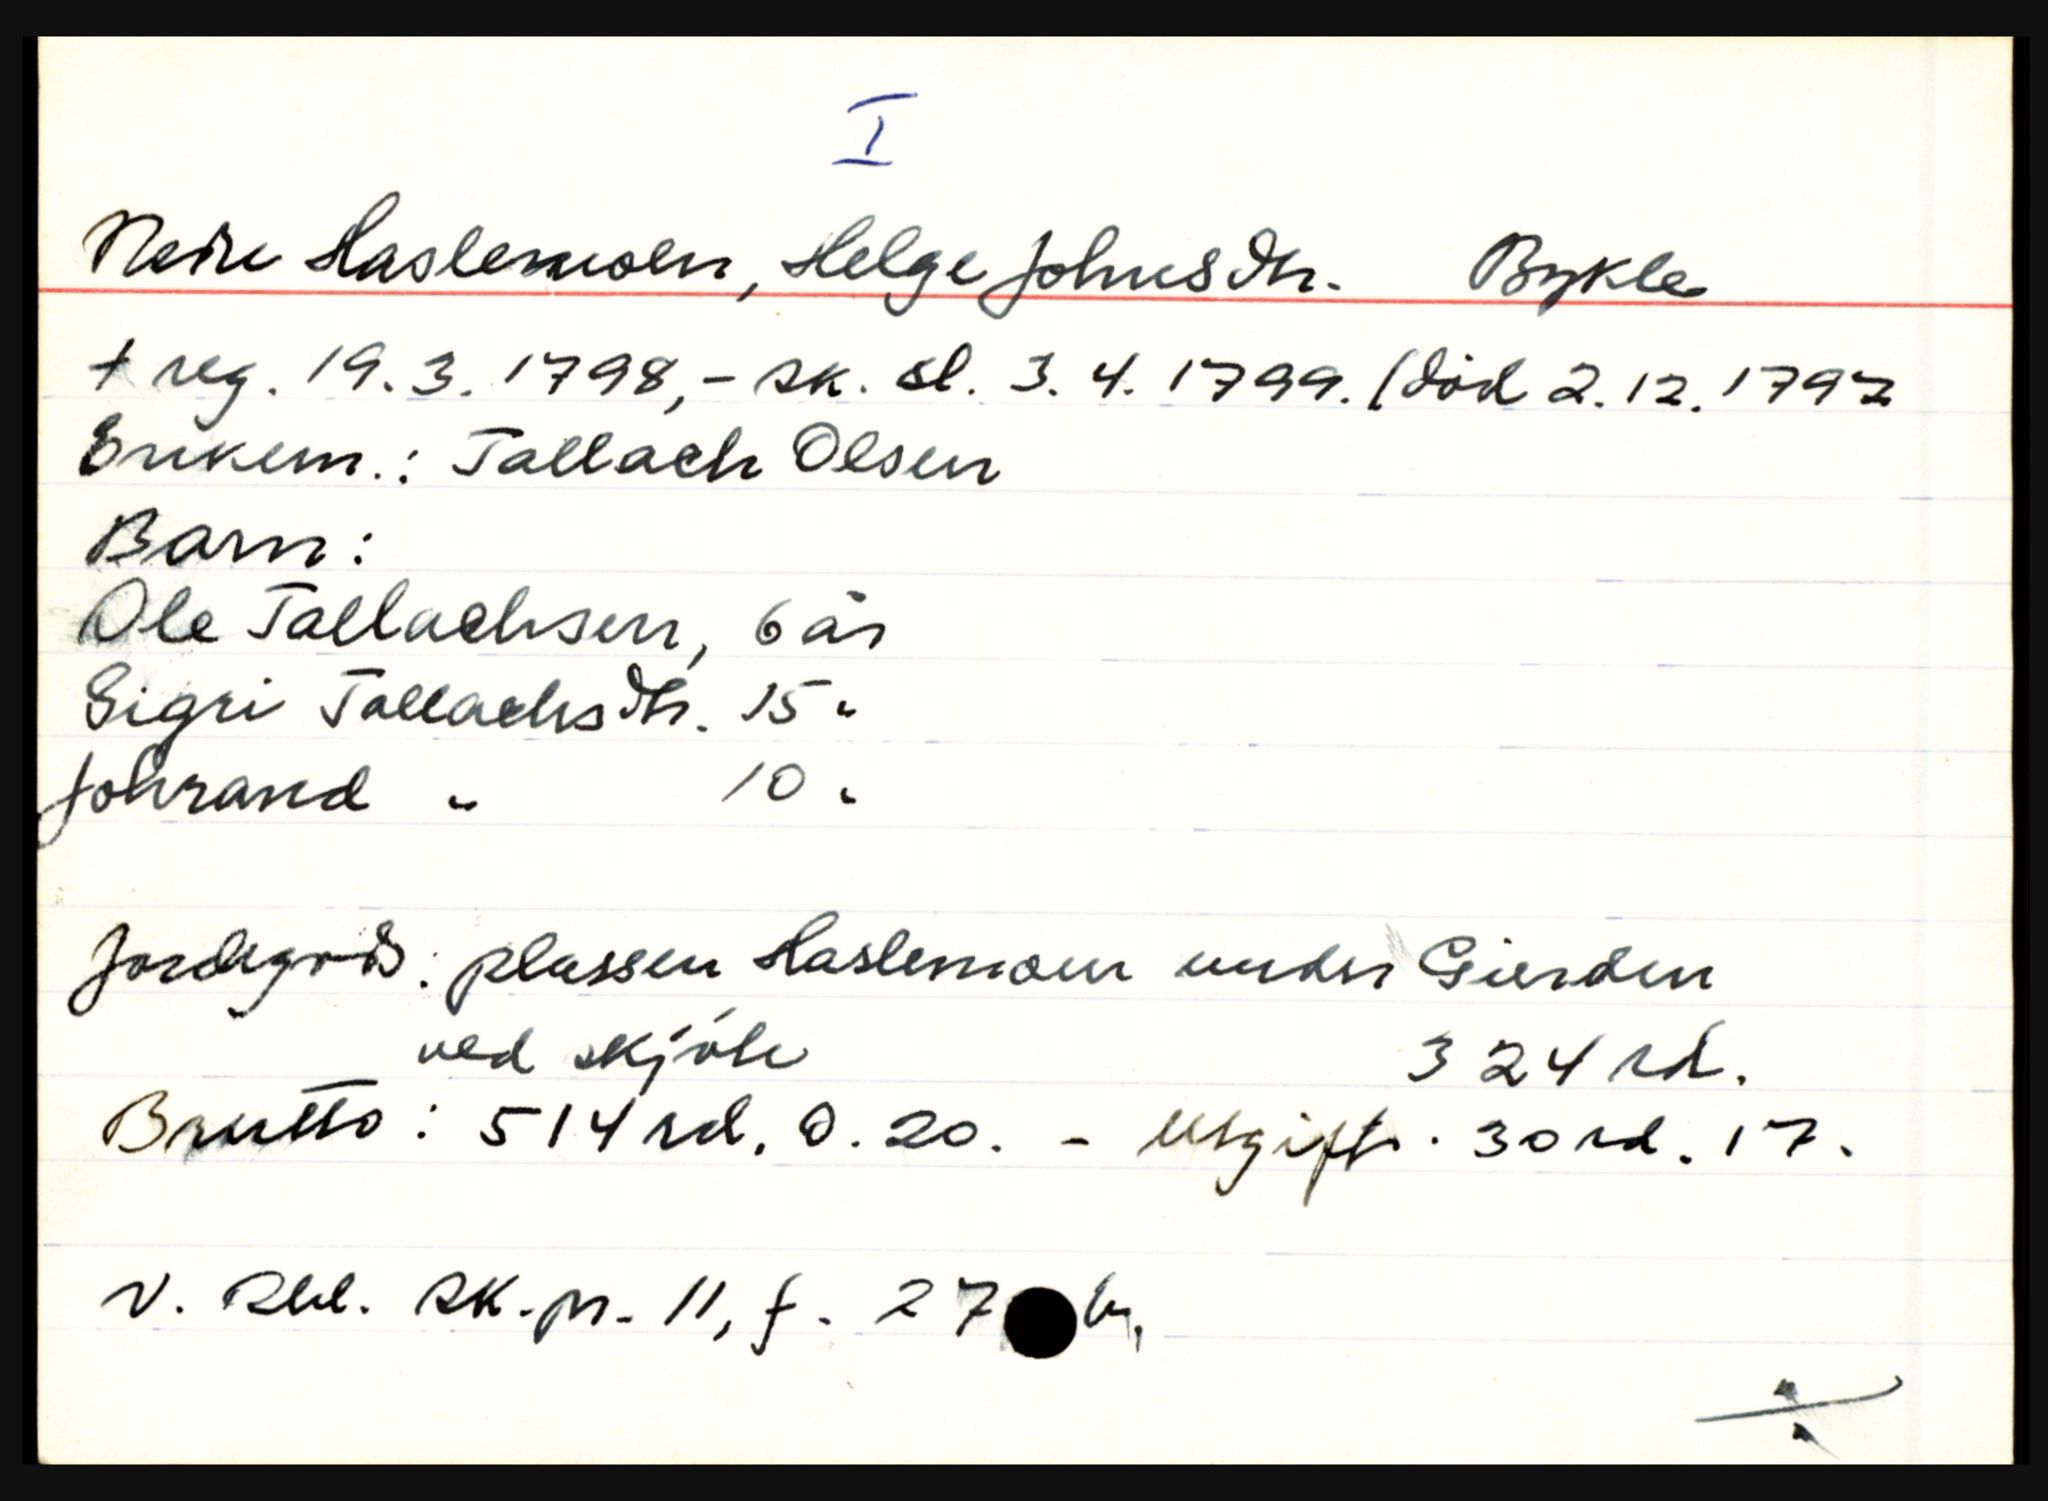 I
Nedre Haslemoen, Helge Johnsdtr. Bykle
† reg. 19.3.1798,- sk. sl. 3.4.1799. (død 2.12.1797
Enkem.: Tallach Olsen
Barn:
Ole Tallachsen, 6 år
Sigri Tallachsdtr. 15 "
Johrand " 10 "
Jordegods: plassen Haslemoen under Gierden
ved skjöte 324 rd.
Brutto: 514 rd. 0. 20. - Utgift. 30 rd. 17.
V. Rbl. sk.pr. 11, f. 27 b,